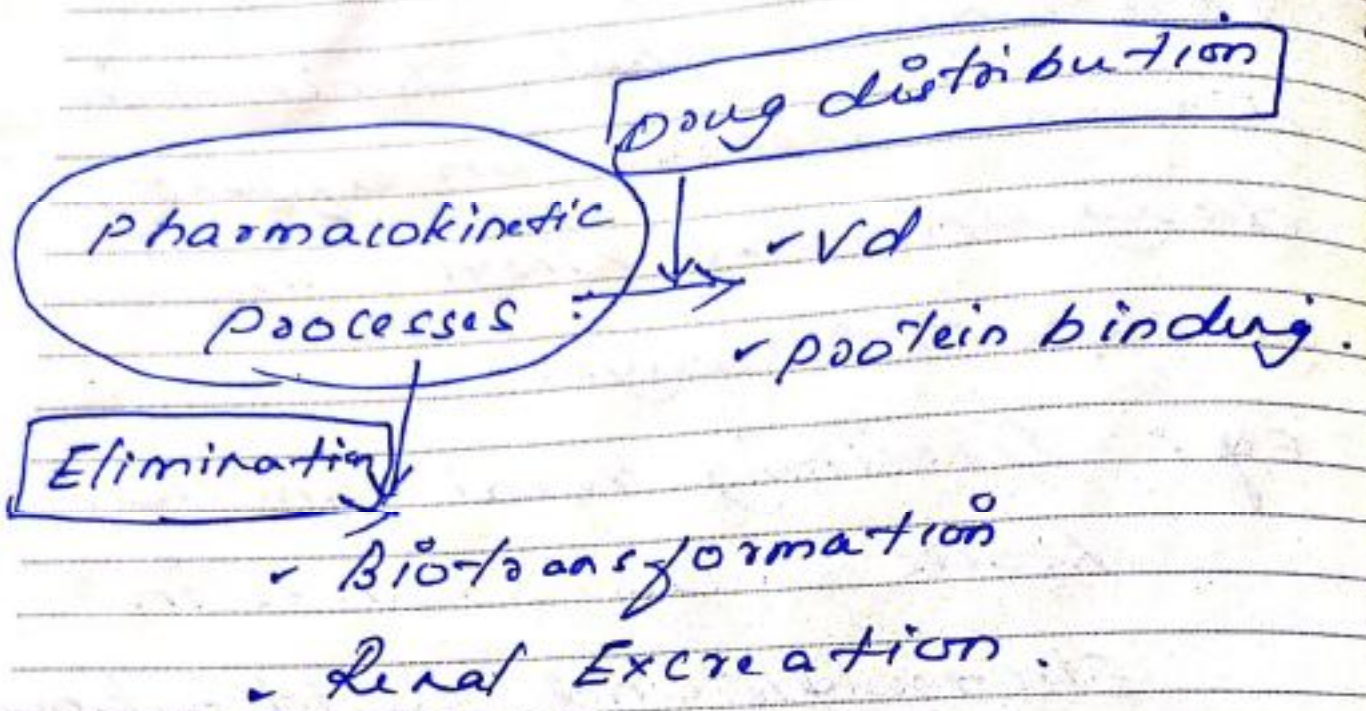 Drug distribution
Pharmacokinetic
processes :
- Vd
- protein binding.
Elimination
- Biotransformation
- Renal Excreation.